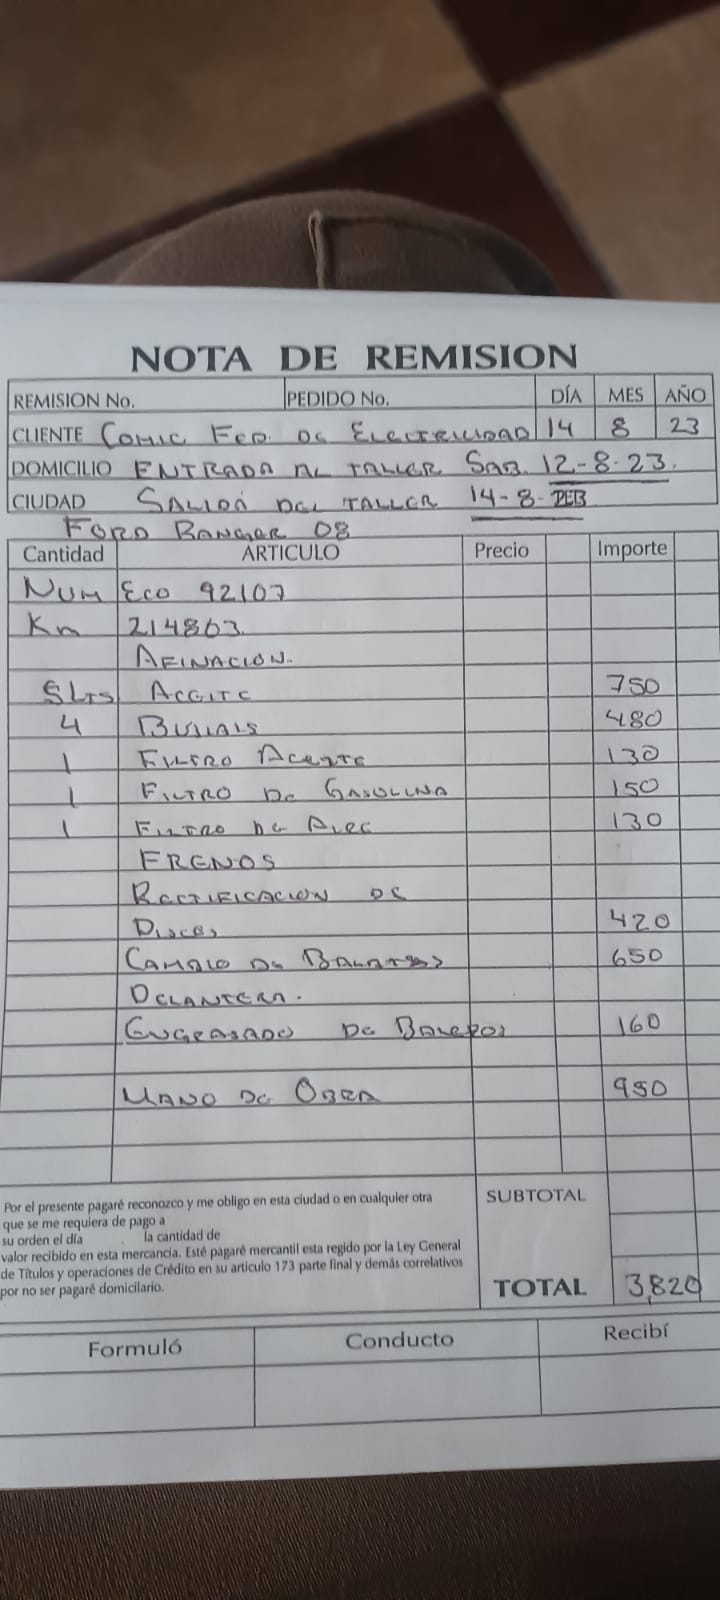 NOTA DE REMISION
REMISION No. PEDIDO No. DÍA MES AÑO
CLIENTE Comic Feo. DE ElectRicidad 14 8 23
DOMICILIO ENTRADA AL TALLER SAB. 12-8-23.
CIUDAD SALIDA DEL TALLER 14-8-
FORD RANGER 08
Cantidad ARTICULO Precio Importe
NUM Eco 92107
Km 214863.
AFINACION.
5 Lts ACEITE 750
4 BUJIAS 480
1 FILTRO ACEITE 130
1 FILTRO DE GASOLINA 150
1 FILTRO DE AIRE 130
FRENOS
RECTIFICACION DE
DISCOS 420
CAMBIO DE BALATAS 650
DELANTERA.
ENGRASADO DE BALEROS 160
MANO DE OBRA 950
Por el presente pagaré reconozco y me obligo en esta ciudad o en cualquier otra
que se me requiera de pago a
su orden el día la cantidad de
valor recibido en esta mercancia. Esté pagaré mercantil esta regido por la Ley General
de Títulos y operaciones de Crédito en su articulo 173 parte final y demás correlativos
por no ser pagaré domicilario.
SUBTOTAL
TOTAL 3,820
Formuló Conducto Recibí